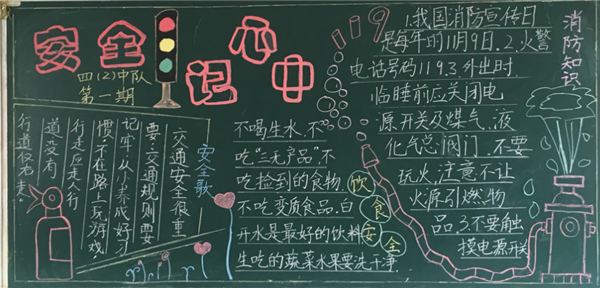 安全
记
心中
四(2)中队
第一期
安全歌
交通安全很重
要,交通规则要
记牢,从小养成好习
惯,不在路上玩游戏。
行走应走人行
道,没有
行道右走.
不喝生水,不
吃“三无产品”,不
吃捡到的食物,
不吃变质食品,白
开水是最好的饮料
生吃的蔬菜水果要洗干净.
饮食安全
119
1.我国消防宣传日
是每年的11月9日.2.火警
电话号码119.3.外出时、
临睡前应关闭电
原开关及煤气、液
化气总阀门.不要
玩火,注意不让
火源引燃物
品3.不要触
摸电源开关
消防知识